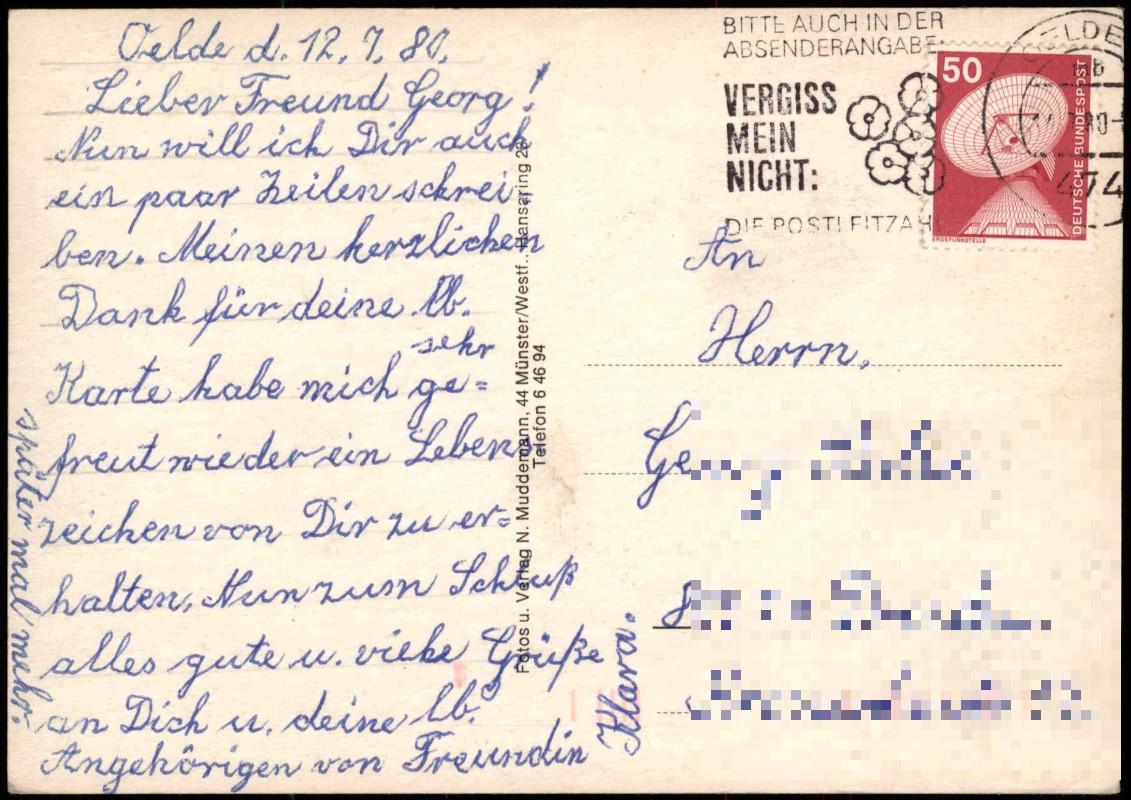 Oelde d. 12.7.80.
Lieber Freund Georg!
Nun will ich Dir auch
ein paar Zeilen schrei-
ben. Meinen herzlichen
Dank für deine lb.
sehr
Karte habe mich ge=
freut wieder ein Lebens
zeichen von Dir zu er=
halten. Nun zum Schluß
alles gute u. viele Grüße
an Dich u. deine lb.
Angehörigen von Freundin
Klara.
später mal mehr.
Fotos u. Verlag N. Muddemann, 44 Münster/Westf., Hansaring 28
Telefon 6 46 94
BITTE AUCH IN DER
ABSENDERANGABE:
VERGISS
MEIN
NICHT:
DIE POSTLEITZAH
50
DEUTSCHE BUNDESPOST
ERDEFUNKSTELLE
OELDE
474
An
Herrn,
Ge